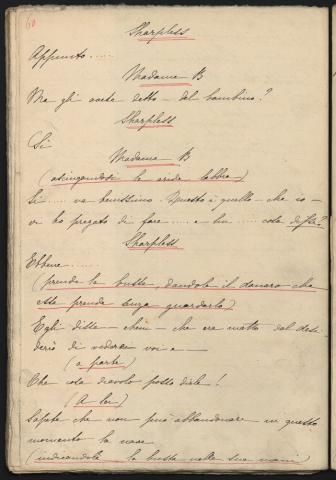 60
Sharpless
Appunto .....
Madama B
Ma gli avete detto - del bambino?
Sharpless
Si
Madama B
(asciugandosi le aride labbra)
Si .... va benissimo. Questo è quello - che io -
vi ho pregato di fare .... e lui .... cosa disse?
Sharpless
Ebbene .......
(prende la busta, dandole il danaro che
essa prende senza guardarlo)
Egli disse - ehm - che era matto dal desi
derio di vedere voi e —
(a parte)
Che cosa diavolo posso dirle!
(A lei)
Sapete che non può abbandonare in questo
momento la nave
(indicandole la busta nelle sue mani)